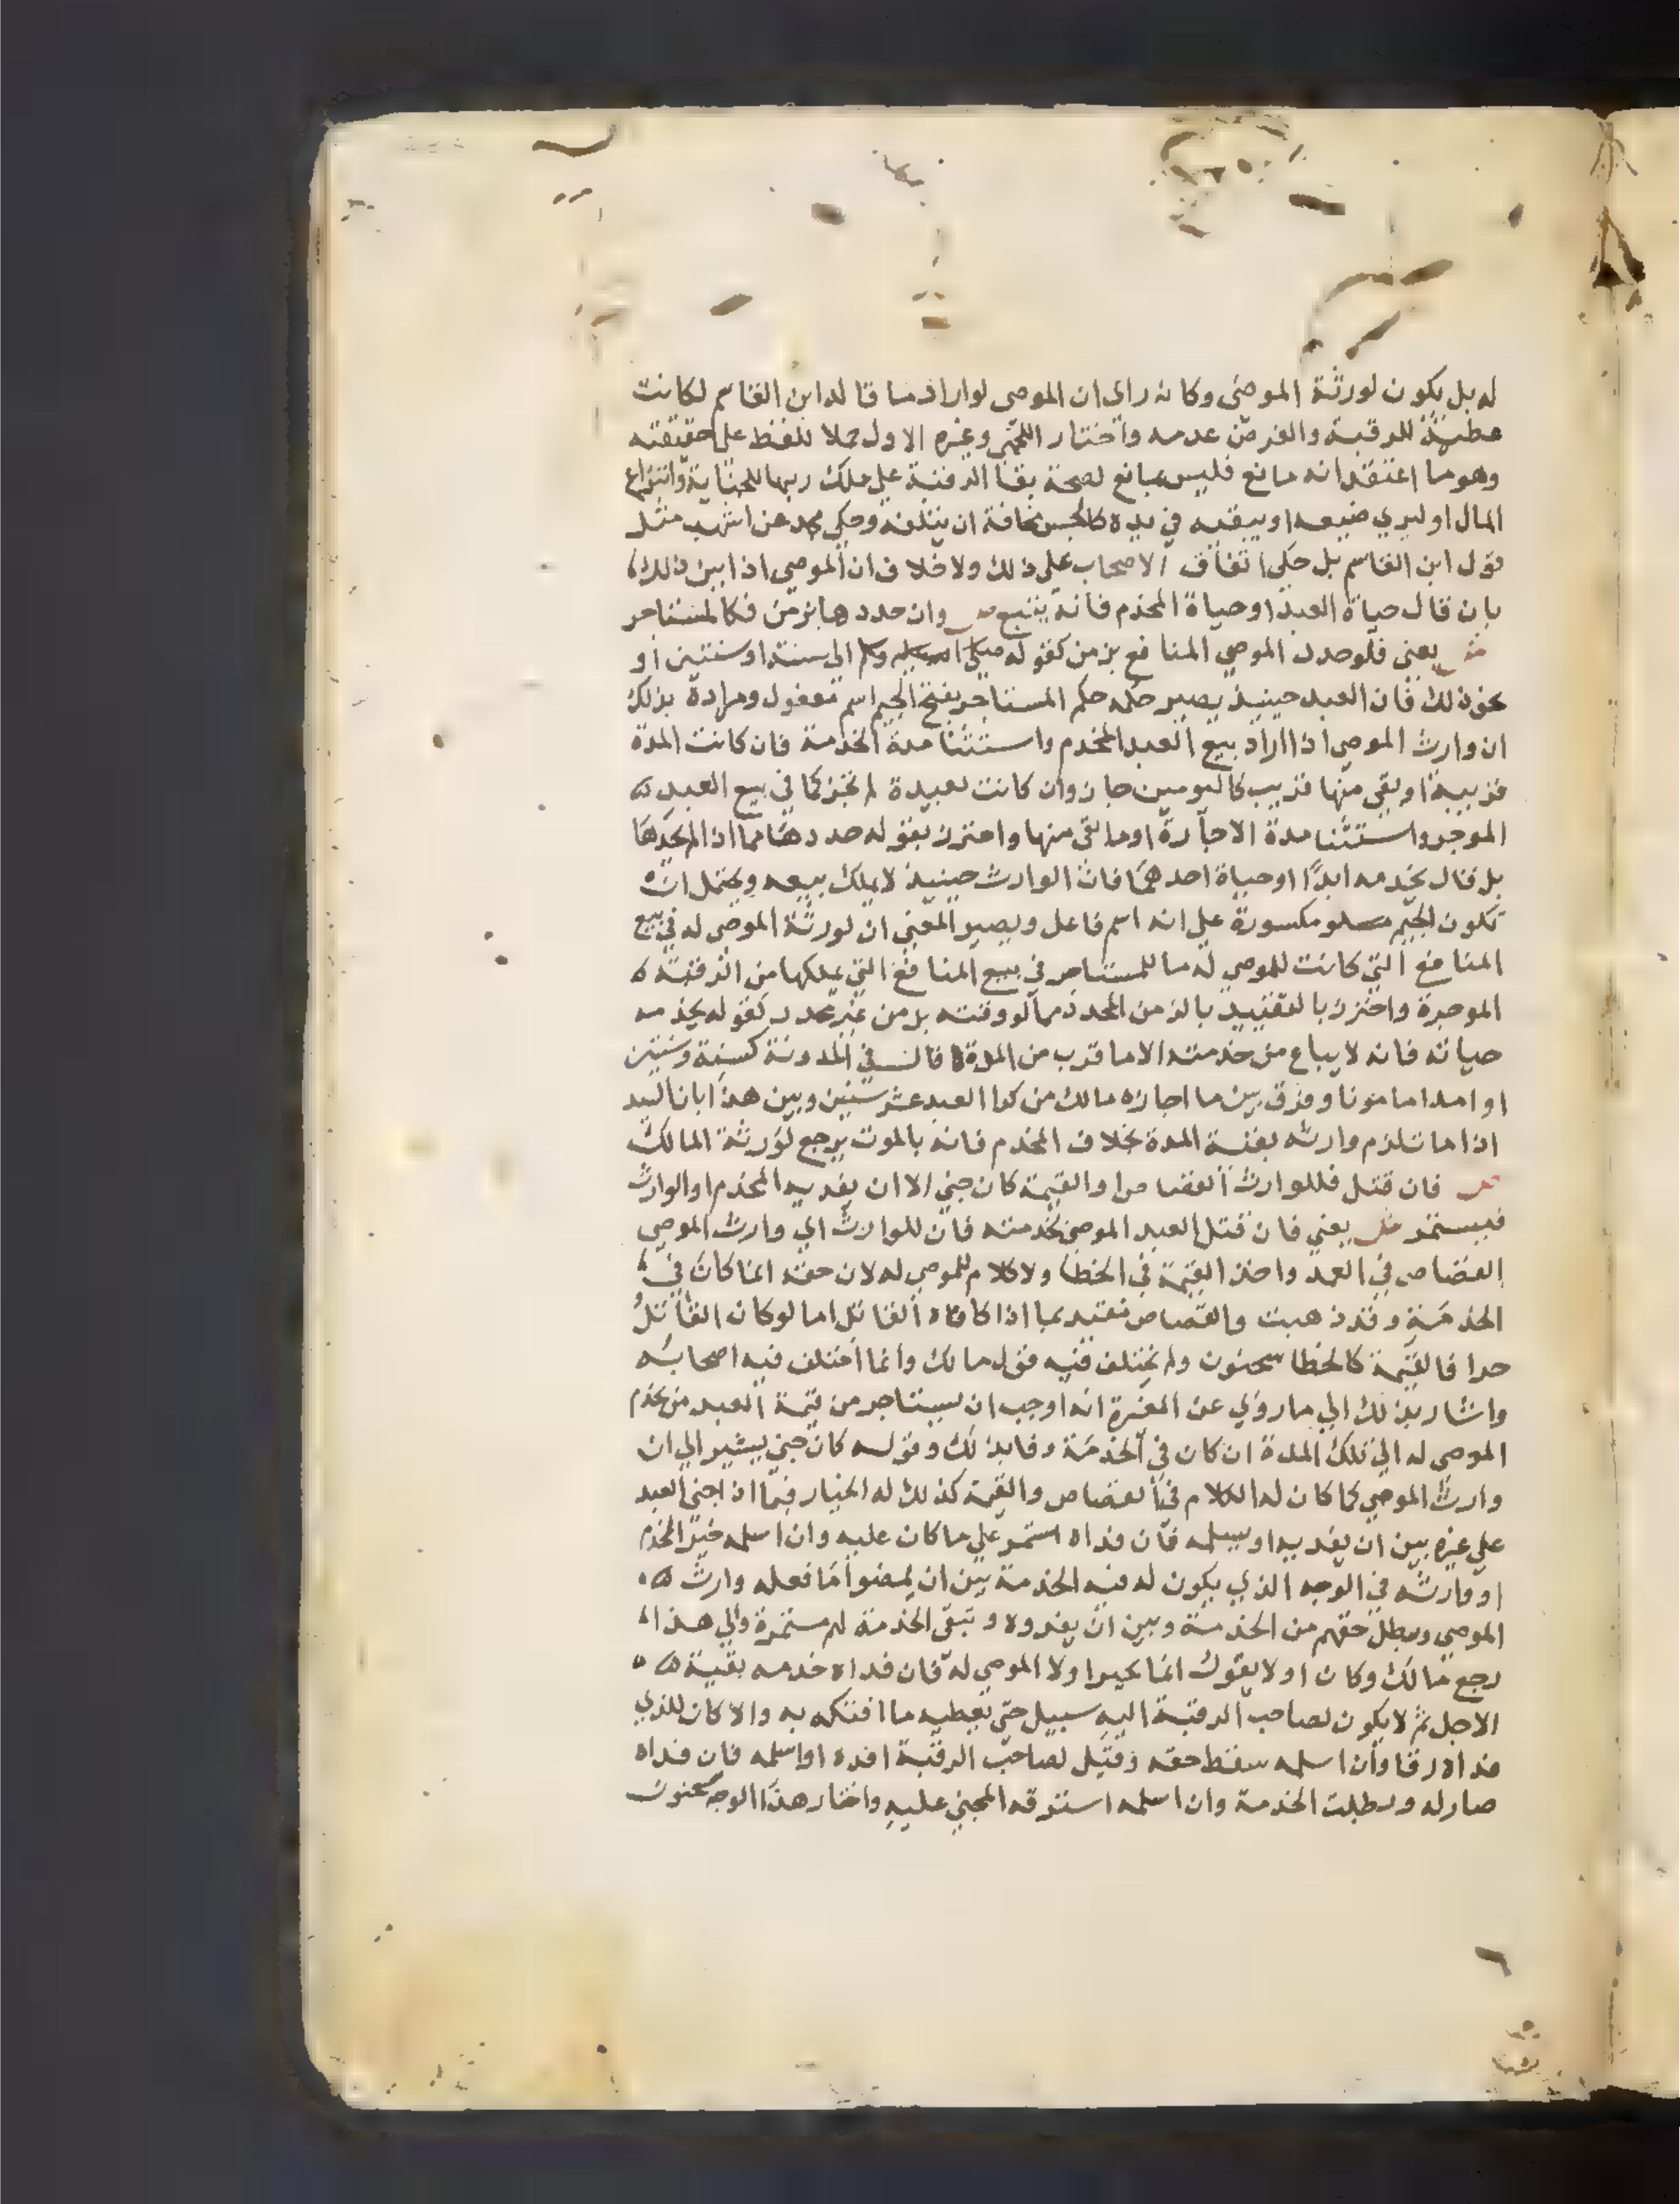 له بل يكون لورثة الموصي وكانه راي ان الموصي لو اراد ما قاله ابن القاسم لكانت
عطية للرقبة والفرض عدمه واختار اللخمي وغيره الاول حملا للفظ على حقيقته
وهو ما اعتقد انه مانع فليس بمانع لصحة بقا الرقبة على ملك ربها للجناية وانتزاع
المال او ليري ضيعه او يبقيه في يده كالحبس مخافة ان يتلفه وحكي محمد عن اشهب مثل
قول ابن القاسم بل حكى اتفاق الاصحاب على ذلك ولا خلاف ان الموصي اذا بين ذلك
بان قال حياة العبد او حياة المخدم فانه يتبع ص وان حددها بزمن فكالمستاجر
ش يعني فلو حدد الموصي المنافع بزمن كقوله الى سنة او سنتين او
نحو ذلك فان العبد حينيذ يصير حكمه حكم المستاجر بفتح الجيم اسم مفعول ومراده بذلك
ان وارث الموصي اذا اراد بيع العبد المخدم واستثنا مدة الخدمة فان كانت المدة
قريبة او بقي منها قريب كاليومين جاز وان كانت بعيدة لم يجز كما في بيع العبد
الموجر واستثنا مدة الاجارة او ما بقي منها واحترز بقوله حددها مما اذا لم يحدها
بل قال يخدمه ابدا او حياة احدهما فان الوارث حينيذ لا يملك بيعه ويحتمل ان
تكون الجيم مكسورة على انه اسم فاعل ويصير المعنى ان لورثة الموصى له في بيع
المنافع التي كانت للموصي له ما للمستاجر في بيع المنافع التي يملكها من الرقبة
الموجرة واحترز بالتقييد بالزمن المحدد مما لو وقته بزمن غير محدد كقوله يخدمه
حياته فانه لا يباع من خدمته الا ما قرب من المدة قال في المدونة كسنة وسنتين
او امدا مامونا وفرق بين ما اجازه مالك من كرا العبد عشر سنين وبين هذا بان السيد
اذا مات لزم وارثه بقية المدة بخلاف المخدم فانه بالموت يرجع لورثة المالك
ص فان قتل فللوارث القصاص او القيمة كان جني الا ان يفديه المخدم او الوارث
فيستمر ش يعني فان قتل العبد الموصى بخدمته فان للوارث اي وارث الموصي
القصاص في العمد واخذ القيمة في الخطا ولا كلام للموصي له لان حقه انما كان في
الخدمة وقد ذهبت والقصاص مقيد بما اذا كافاه القاتل اما لو كان القاتل
حرا فالقيمة كالخطا سحنون ولم يختلف فيه قول مالك وانما اختلف فيه اصحابه
واشار بذلك الي ما روي عن المغيرة انه اوجب ان يستاجر من قيمة العبد من يخدم
الموصى له الي تلك المدة ان كان في الخدمة وفا بذلك وقوله كان جني يشير الي ان
وارث الموصي كما كان له الكلام في القصاص والقيمة كذلك له الخيار فيما اذا جنى العبد
علي غيره بين ان يفديه او يسلمه فان فداه استمر علي ما كان عليه وان اسلمه خير المخدم
او وارثه في الوجه الذي يكون له فيه الخدمة بين ان يمضوا ما فعله وارث
الموصي ويبطل حقهم من الخدمة وبين ان يفدوه وتبقى الخدمة لهم مستمرة والي هذا
رجع مالك وكان اولا يقول انما يخير اولا الموصي له فان فداه خدمه بقية
الاجل ثم لا يكون لصاحب الرقبة اليه سبيل حتى يعطيه ما افتكه به والا كان للذي
فداه رقا وان اسلمه سقط حقه وقيل لصاحب الرقبة افده او اسلمه فان فداه
صار له وبطلت الخدمة وان اسلمه استرقه المجني عليه واختار هذا الوجه سحنون